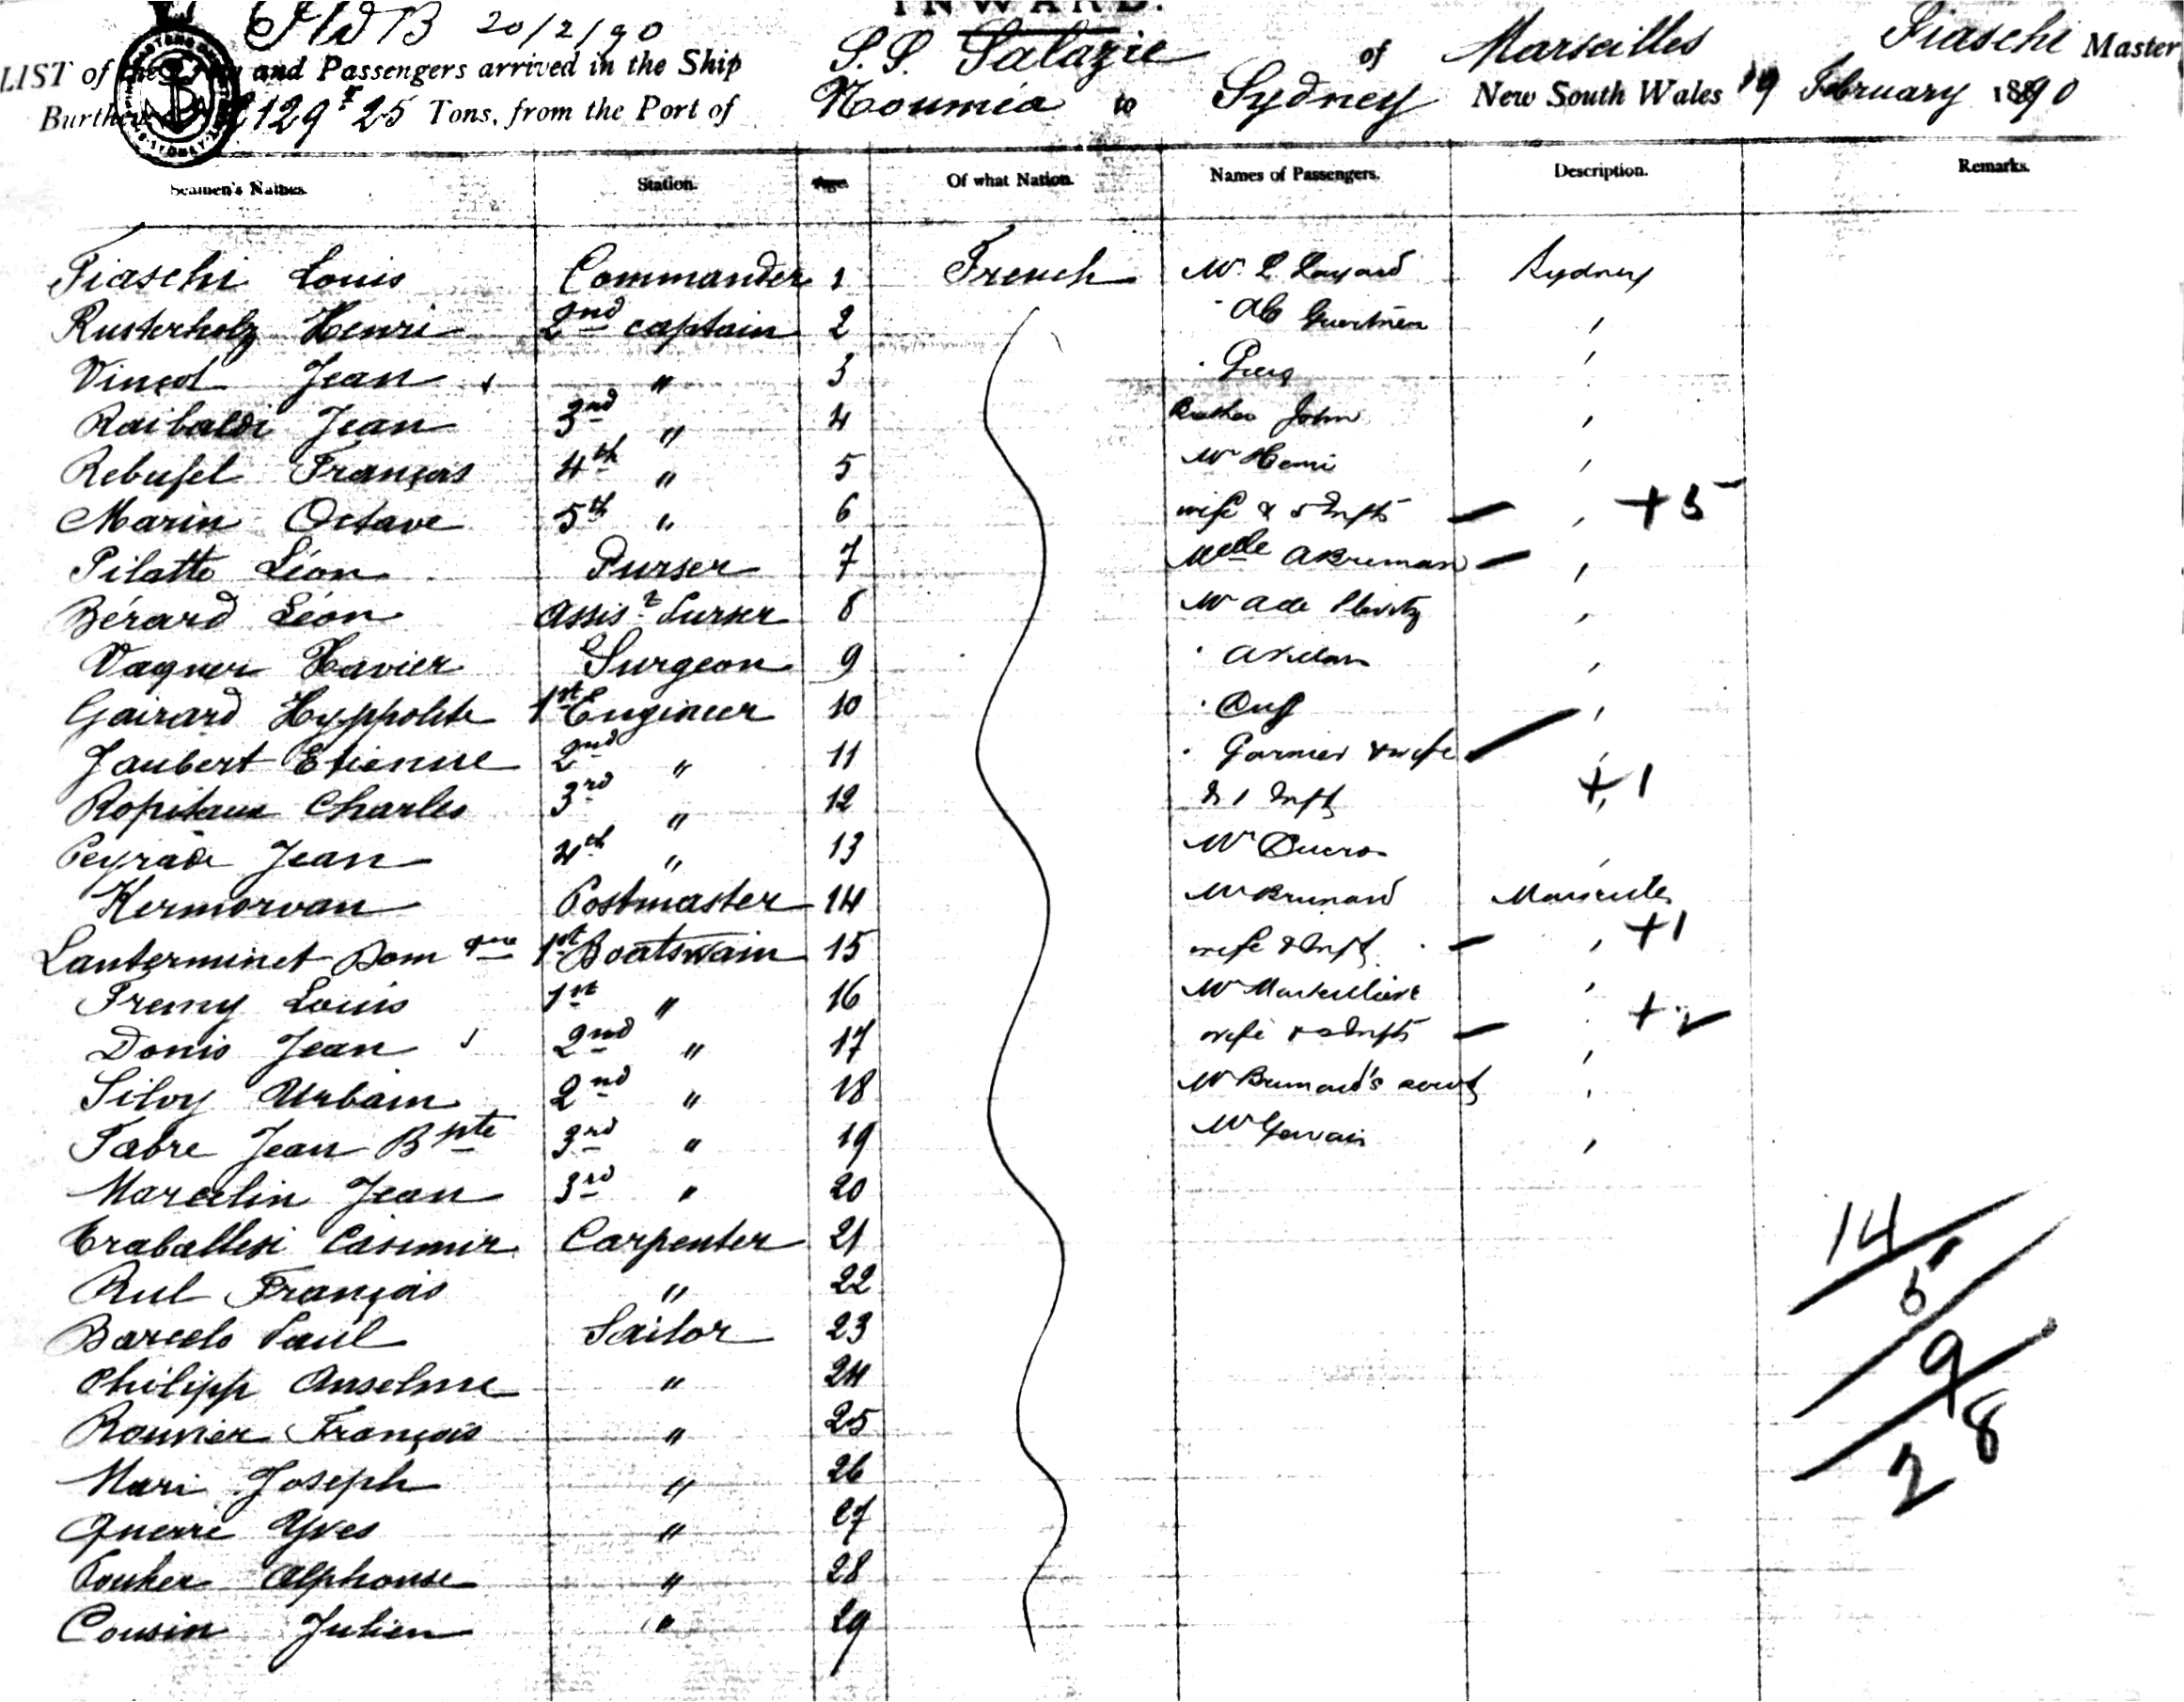 INWARD.
20/2/90
LIST of the Crew and Passengers arrived in the Ship S.S. Salazie of Marseilles Fiaschi Master
Burthen 129 25 Tons, from the Port of Nouméa to Sydney New South Wales 19 February 1890
Seamen's Names. Station. Age. Of what Nation. Names of Passengers. Description. Remarks.
Fiaschi Louis Commander 1 French Mr L. Layard Sydney
Rusterholz Henri 2nd captain 2
Vinçot Jean " 3
Raibaldi Jean 3rd " 4 John
Rebufel François 4th " 5 Mr Henri
Marin Octave 5th " 6 wife & 5 Infts + 5
Pilatte Léon Purser 7 Melle
Bérard Léon Assist Purser 8 Mr
Vagner Xavier Surgeon 9
Gairard Hyppolite 1st Engineer 10
Jaubert Etienne 2nd " 11 Garnier & wife
Ropiteau Charles 3rd " 12 & 1 Inft + 1
Peyrade Jean 4th " 13 Mr Ducros
Kermorvan Postmaster 14 Mr Brunard Marseilles
Lanterminet Dom que 1st Boatswain 15 wife & Inft + 1
Fremy Louis 1st " 16 Mr
Donis Jean 2nd " 17 wife & 2 Infts + 2
Silvy Urbain 2nd " 18 Mr
Fabre Jean Bpte 3rd " 19 Mr Gervais
Marcelin Jean 3rd " 20
Traballesi Casimir Carpenter 21
Rul François " 22
Barcelo Paul Sailor 23
Philipp Anselme " 24
Rouvier François " 25
Mari Joseph " 26
Querré Yves " 27
Alphonse " 28
Cousin Julien " 29
14
5
9
28